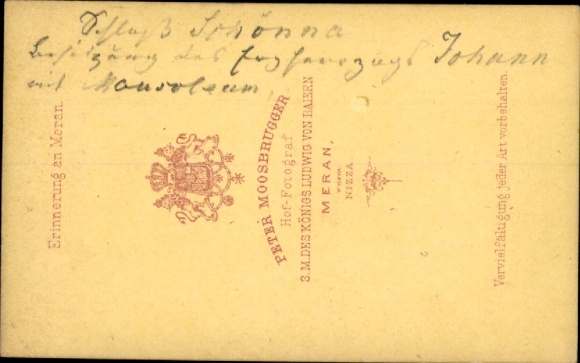 Schloß Schönna
Besitzung des Erzherzogs Johann
mit Mausoleum.
Erinnerung an Meran.
PETER MOOSBRUGGER
Hof-Fotograf
S.M. DES KÖNIGS LUDWIG VON BAIERN
MERAN,
vorm.
NIZZA.
Vervielfältigung jeder Art vorbehalten.